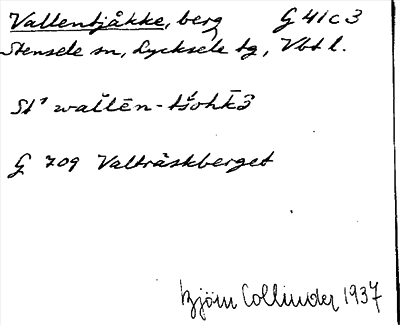 Vallentjåkke, berg G 41 c 3
Stensele sn, Lycksele tg, Vbt l.
St³ wallēn-tšohkɜ̄
G 709 Valträskberget
Björn Collinder 1937